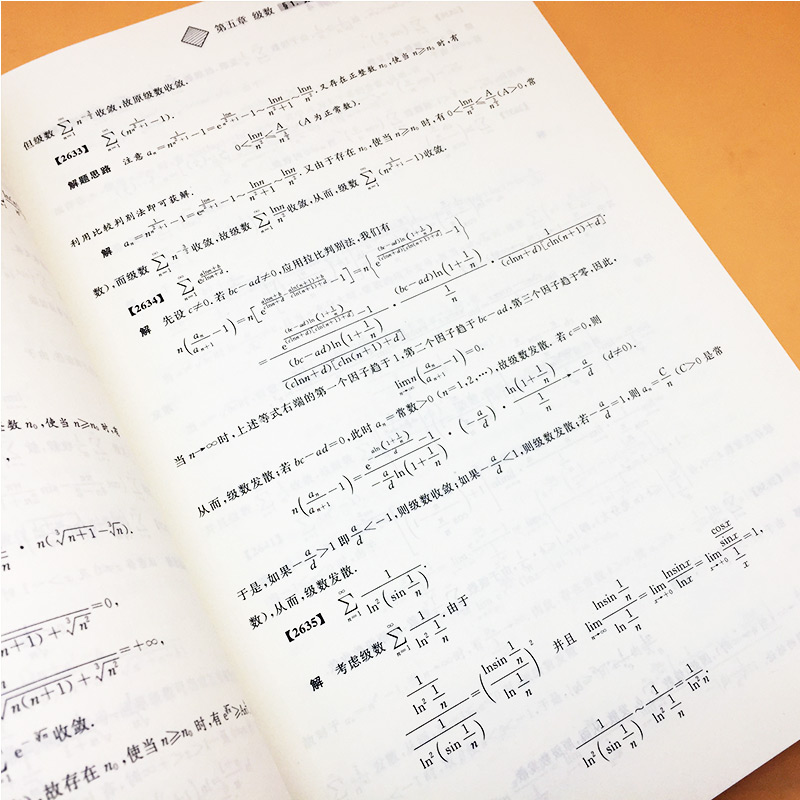 第五章 级数
但级数 $\sum_{n=1}^{\infty} n^{-\frac{3}{2}}$ 收敛,故原级数收敛.
【2633】 $\sum_{n=1}^{\infty} (n^{\frac{1}{n^2+1}}-1)$.
解题思路 注意 $a_n=n^{\frac{1}{n^2+1}}-1=e^{\frac{\ln n}{n^2+1}}-1\sim\frac{\ln n}{n^2+1}\sim\frac{\ln n}{n^2}$. 又存在正整数 $n_0$,使当 $n\geqslant n_0$ 时,有
(A 为正常数).
利用比较判别法即可获解.
解 $a_n=n^{\frac{1}{n^2+1}}-1=e^{\frac{\ln n}{n^2+1}}-1\sim\frac{\ln n}{n^2+1}\sim\frac{\ln n}{n^2}$. 又由于存在 $n_0$,使当 $n\geqslant n_0$ 时,有
数),而级数 收敛,故级数 $\sum_{n=1}^{\infty}\frac{\ln n}{n^2}$ 收敛,从而,级数 $\sum_{n=1}^{\infty}(n^{\frac{1}{n^2+1}}-1)$ 收敛.
【2634】 $\sum_{n=1}^{\infty} e^{\frac{a\ln n+b}{c\ln n+d}}$.
解 先设 $c\neq 0$. 若 $bc-ad\neq 0$,应用拉比判别法,我们有
$n\left(\frac{a_n}{a_{n+1}}-1\right)=n\left[e^{\frac{a\ln n+b}{c\ln n+d}-\frac{a\ln(n+1)+b}{c\ln(n+1)+d}}-1\right]=n\left\{e^{\frac{(bc-ad)\ln(1+\frac{1}{n})}{(c\ln n+d)[c\ln(n+1)+d]}}-1\right\}$
$=\frac{e^{\frac{(bc-ad)\ln(1+\frac{1}{n})}{(c\ln n+d)[c\ln(n+1)+d]}}-1}{\frac{(bc-ad)\ln\left(1+\frac{1}{n}\right)}{(c\ln n+d)[c\ln(n+1)+d]}}\cdot\frac{(bc-ad)\ln\left(1+\frac{1}{n}\right)}{\frac{1}{n}}\cdot\frac{1}{(c\ln n+d)[c\ln(n+1)+d]}$.
当 $n\to\infty$ 时,上述等式右端的第一个因子趋于1,第二个因子趋于 $bc-ad$,第三个因子趋于零,因此,
$\lim_{n\to\infty} n\left(\frac{a_n}{a_{n+1}}-1\right)=0$.
从而,级数发散;若 $bc-ad=0$,此时 $a_n=$常数$>0$ $(n=1,2,\cdots)$,故级数发散. 若 $c=0$,则
$n\left(\frac{a_n}{a_{n+1}}-1\right)=\frac{e^{-\frac{a}{d}\ln(1+\frac{1}{n})}-1}{-\frac{a}{d}\ln\left(1+\frac{1}{n}\right)}\cdot\left(-\frac{a}{d}\right)\cdot\frac{\ln\left(1+\frac{1}{n}\right)}{\frac{1}{n}}\to-\frac{a}{d}$ $(d\neq 0)$.
于是,如果 $-\frac{a}{d}>1$ 即 $\frac{a}{d}<-1$,则级数收敛;如果 $-\frac{a}{d}<1$,则级数发散;若 $-\frac{a}{d}=1$,则 $a_n=\frac{C}{n}$ $(C>0$ 是常
数),从而,级数发散.
【2635】 $\sum_{n=1}^{\infty}\frac{1}{\ln^2\left(\sin\frac{1}{n}\right)}$.
解 考虑级数 $\sum_{n=1}^{\infty}\frac{1}{\ln^2\frac{1}{n}}$. 由于
$\frac{\frac{1}{\ln^2\frac{1}{n}}}{\frac{1}{\ln^2\left(\sin\frac{1}{n}\right)}}=\left(\frac{\ln\sin\frac{1}{n}}{\ln\frac{1}{n}}\right)^2$ 并且 $\lim_{n\to\infty}\frac{\ln\sin\frac{1}{n}}{\ln\frac{1}{n}}=\lim_{x\to+0}\frac{\ln\sin x}{\ln x}=\lim_{x\to+0}\frac{\frac{\cos x}{\sin x}}{\frac{1}{x}}=1$,
$\frac{1}{\ln^2\left(\sin\frac{1}{n}\right)}\sim\frac{1}{\ln^2\frac{1}{n}}=\frac{1}{\ln^2 n}$.
数 $n_0$,使当 $n\geqslant n_0$ 时,有
$\cdot\ n(\sqrt[3]{n+1}-\sqrt[3]{n})$.
$=0$,
$=+\infty$,
收敛.
故存在 $n_0$,使当 $n\geqslant n_0$ 时,有